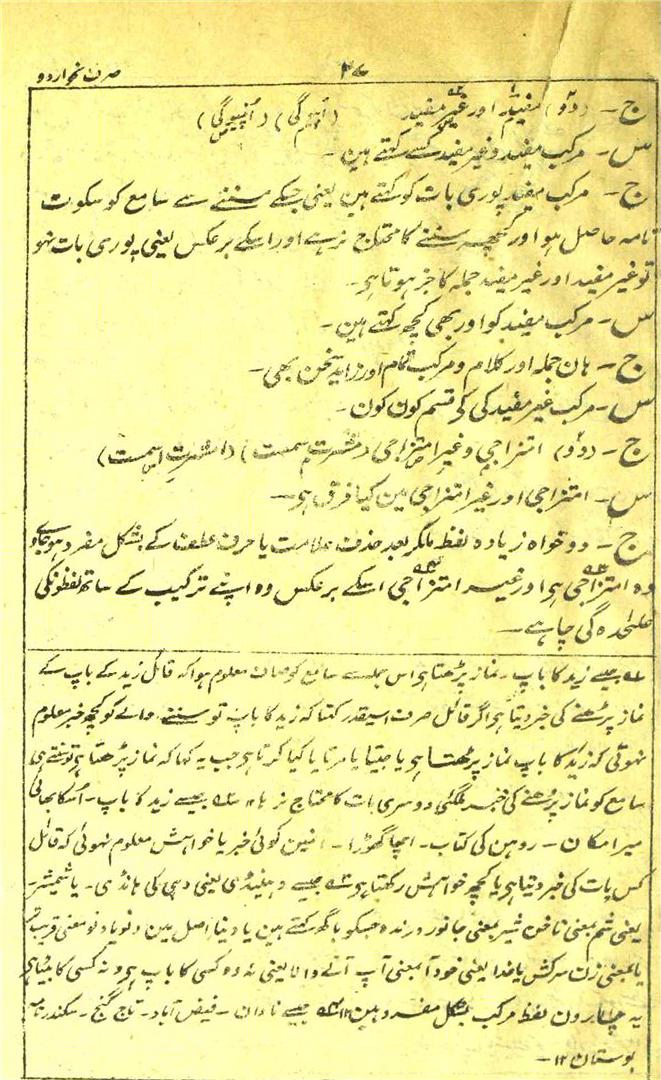 ۳۷ صرف نحو اردو
ج - (دوٗ) مفید اور غیر مفید
س - مرکب مفید و غیر مفید کسے کہتے ہین -
ج - مرکب مفید پوری بات کو کہتے ہین یعنی جسکے سننے سے سامع کو سکوت
تامہ حاصل ہو اور کچھ سننے کا محتاج نرہے اور اسکے برعکس یعنی پوری بات نہو
تو غیر مفید اور غیر مفید جملہ کا جز ہوتا ہی -
س - مرکب مفید کو اور بھی کچھ کہتے ہین -
ج - ہان جملہ اور کلام و مرکب تمام اور زاید سخن بھی -
س - مرکب غیر مفید کی کی قسم کون کون -
ج - (دوٗ) امتزاجی و غیر امتزاجی
س - امتزاجی اور غیر امتزاجی مین کیا فرق ہی -
ج - دو خواہ زیادہ لفظ ملکر بعد حذف علامت یا حرف عطف کے بشکل مفرد ہوجاے
وہ امتزاجی ہی اور غیر امتزاجی اسکے برعکس وہ اپنے ترکیب کے ساتھ لفظونکی
علحدہ گی چاہے -
۱؎ جیسے زید کا باپ - نماز پڑھتا ہی اس جملہ سے سامع کو صاف معلوم ہوا کہ قائل زید کے باپ کے
نماز پڑھنے کی خبر دیتا ہی اگر قائل صرف اسیقدر کہتا کہ زید کا باپ تو سننے والے کو کچھ خبر معلوم
نہوتی کہ زید کا باپ نماز پڑھتا ہی یا جیتا یا مرتا یا کیا کرتا ہی جب یہ کہا کہ نماز پڑھتا ہی تو سنتے ہی
سامع کو نماز پڑھنے کی خبر ملگئی دوسری بات کا محتاج نرہا ۱۲ ۲؎ جیسے زید کا باپ - اُسکا بھائی
میرا مکان - روہن کی کتاب - اچھا گھوڑا - انمین کوئی خبر یا خواہش معلوم نہوئی کہ قائل
کس بات کی خبر دیتا ہی یا کچھ خواہش رکھتا ہی ۳؎ جیسے دہینڈی یعنی دہی کی ہانڈی - یا شمشیر
یعنی شم بمعنی ناخون شیر بمعنی جانور درندہ جسکو باگھ کہتے ہین یا دنیا اصل مین
یا بمعنی زن سرکش یا خدا یعنی خود آ بمعنی آپ آنے والا یعنی نہ وہ کسی کا باپ ہی نہ کسی کا بیٹا ہی
یہ چارون لفظ مرکب بشکل مفرد ہین ۱۲ ۴؎ جیسے نادان - فیض آباد - تاج گنج - سکندر نامہ
بوستان ۱۲ -